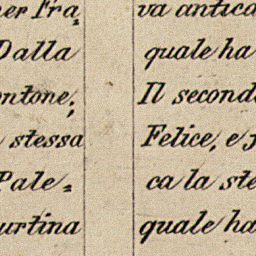 Fra=
Dalla
stessa
Pale=
va antica
quale ha
Il second
Felice, e
ca la ste
quale ha